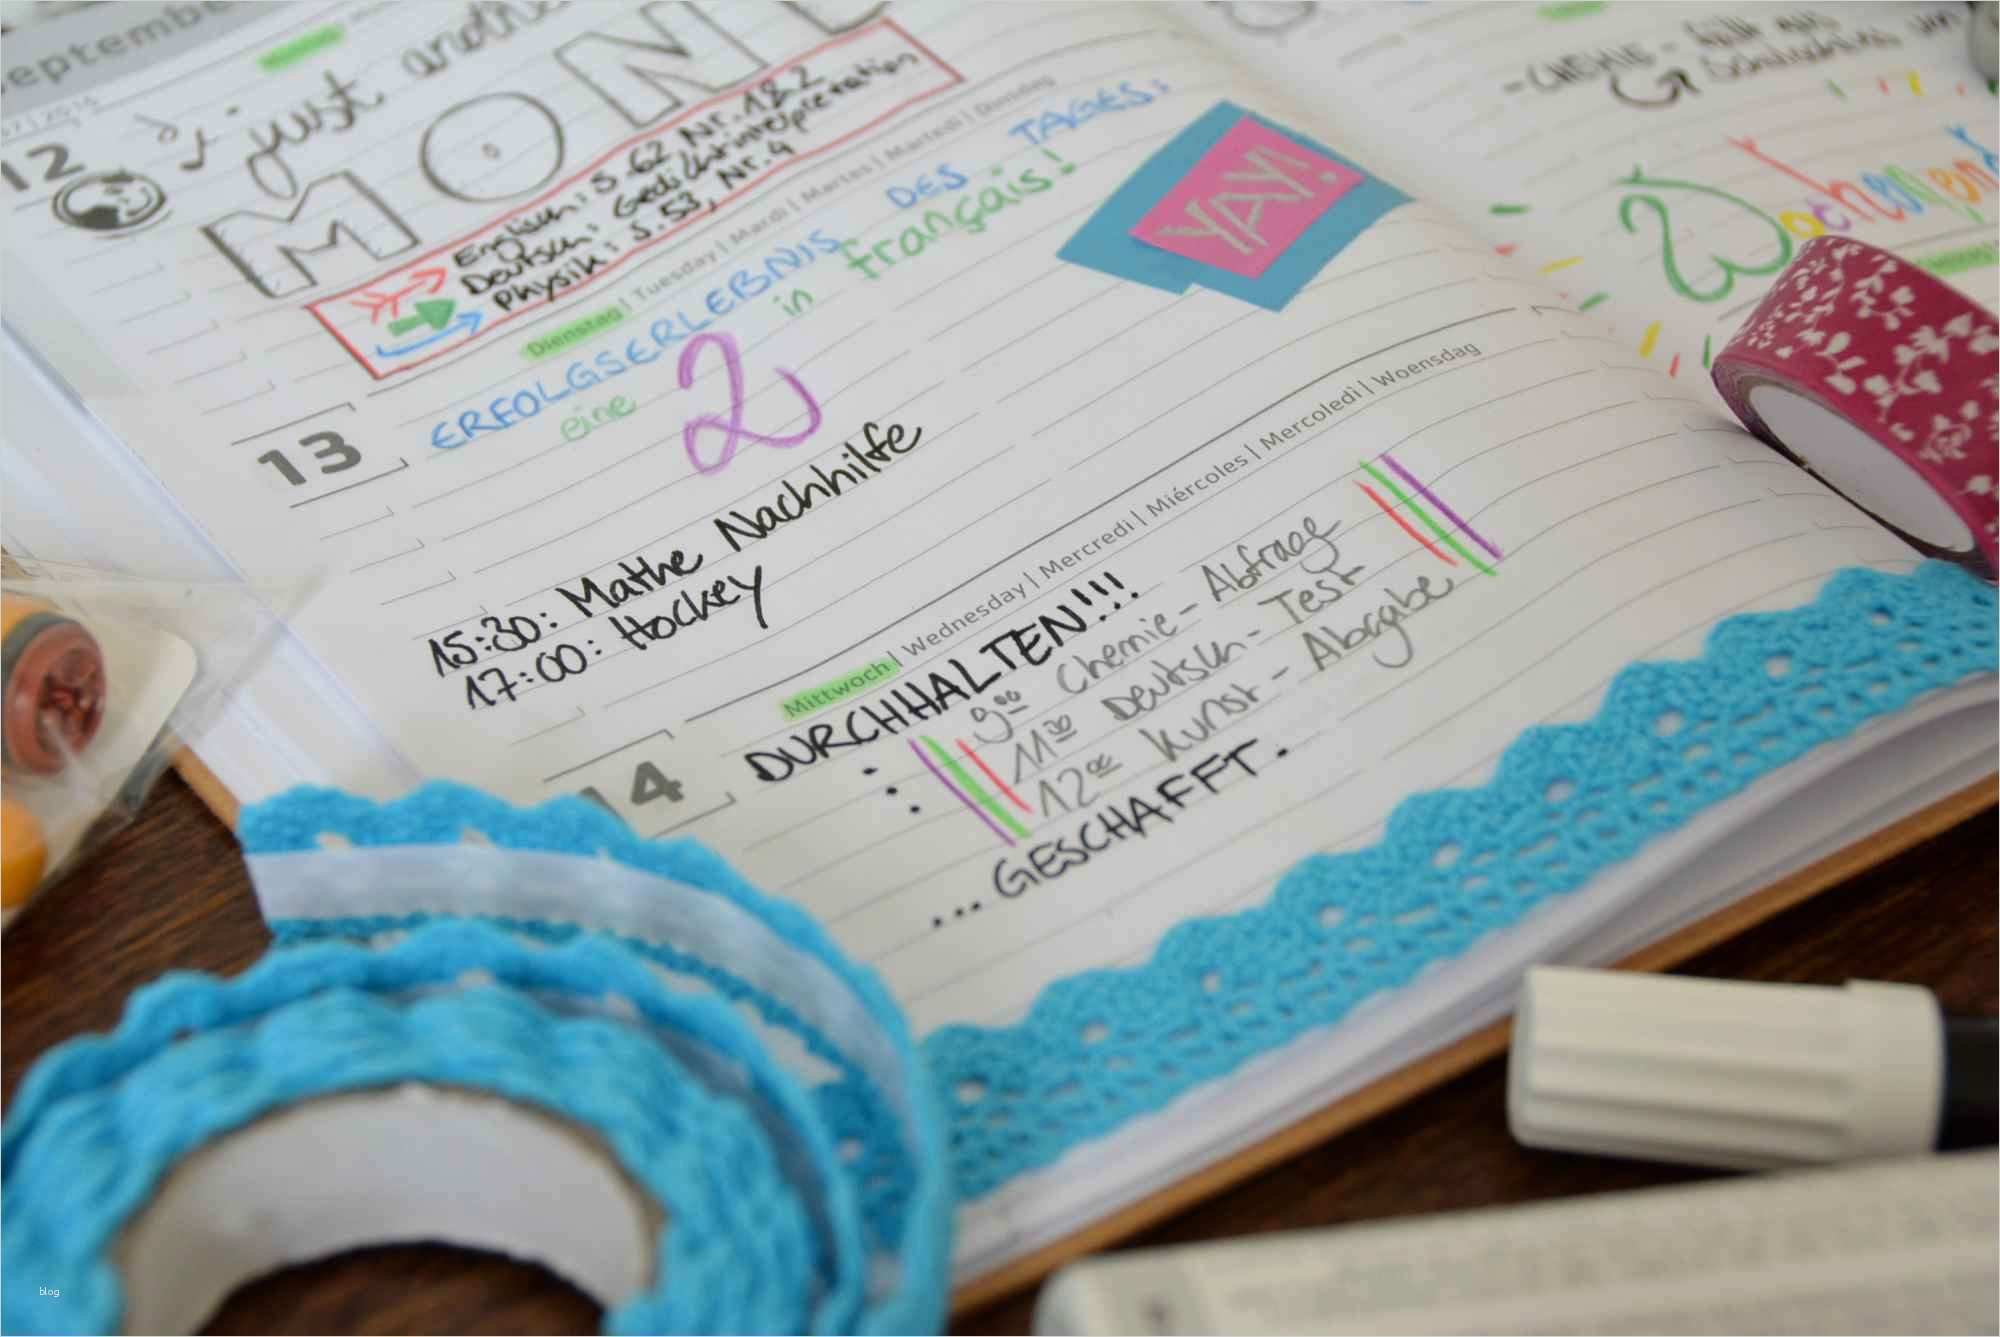 septembe
12
just anothe
MON
Englisch: S. 62, Nr. 1&2
Deutsch: Gedichtinterpretation
Physik: S. 53, Nr. 4
Dienstag | Tuesday | Mardi | Martes | Martedì | Dinsdag
13
ERFOLGSERLEBNIS DES TAGES:
eine 2 in français!
YAY!
15:30: Mathe Nachhilfe
17:00: Hockey
Mittwoch | Wednesday | Mercredi | Miércoles | Mercoledì | Woensdag
14
DURCHHALTEN!!!
: 9⁰⁰ Chemie - Abfrage
11³⁰ Deutsch - Test
12⁰⁰ Kunst - Abgabe
...GESCHAFFT.
- CHEMIE - fällt aus
Wochenen
blog